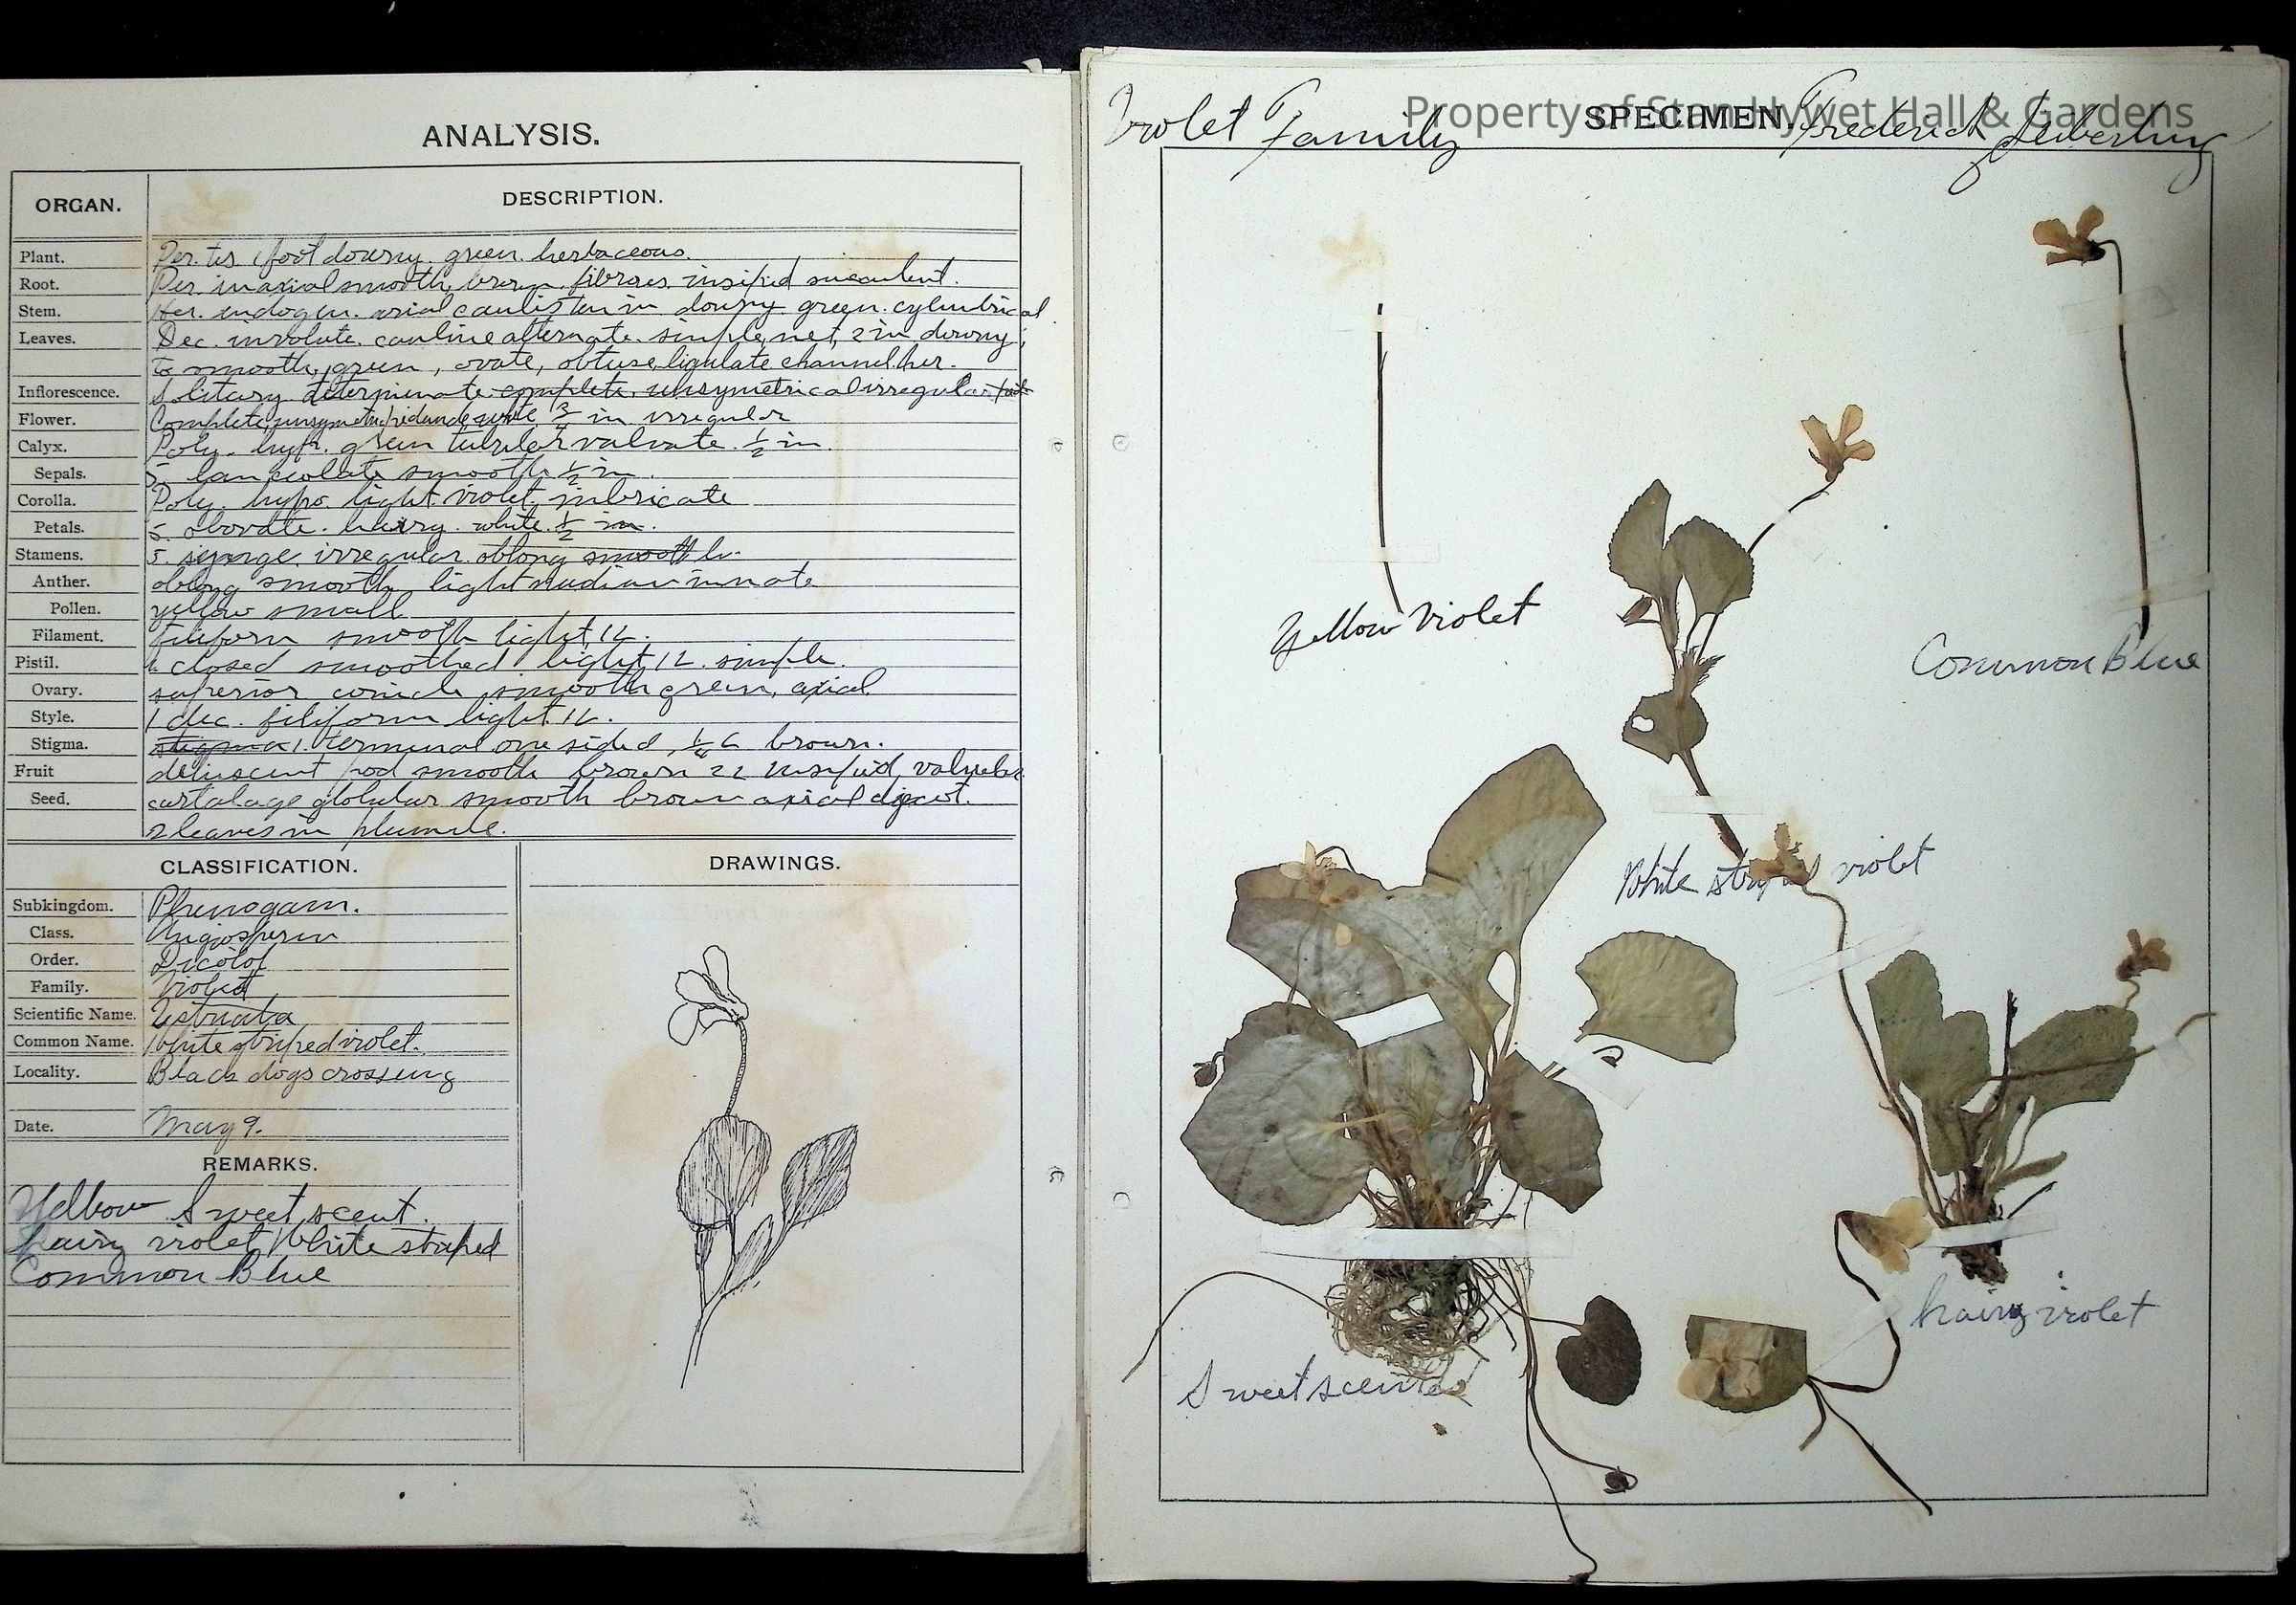 ANALYSIS.
ORGAN. DESCRIPTION.
Plant. Per. ter. 1 foot downy. green. herbaceous.
Root. Per. inaxial smooth, brown. fibrous. insipid succulent.
Stem. Her. indogen. axial caulis ten in downy green. cylindrical
Leaves. Dec. involute. cauline alternate. simple, net, 2 in downy;
to smooth, green, ovate, obtuse, ligulate channel. her.
Inflorescence. Solitary determinate complete, unsymetrical irregular
Flower. Complete, unsymetri, white 3/4 in irregular
Calyx. Poly. hyp. green tubular valvate 1/2 in.
Sepals. 5 lanceolate smooth 1/2 in.
Corolla. Poly. hypo. light violet imbricate
Petals. 5. obovate. hairy. white. 1/2 in.
Stamens. 5. irregular. oblong smooth
Anther. oblong smooth, light innate
Pollen. yellow small
Filament. filiform smooth light 1L.
Pistil. 1. closed smoothed light 1L. simple.
Ovary. superior smooth green, axial
Style. 1 dec. filiform light. 1L.
Stigma. stigma 1. terminal one sided, brown.
Fruit dehiscent pod smooth brown 2L insipid,
Seed. globular smooth brown axial
2 leaves in plumule.
CLASSIFICATION.
Subkingdom. Phenogam.
Class. Angiosperm
Order. Dicotol
Family. Violet
Scientific Name. V striata
Common Name. White striped violet.
Locality. Black dogs crossing
Date. May 9.
REMARKS.
Yellow Sweet scent.
hairy violet White striped
Common Blue
DRAWINGS.
Property of Stan Hywet Hall & Gardens
Violet Family SPECIMEN. Frederick Seiberling
Yellow Violet
Common Blue
White striped violet
hairy violet
Sweet scented